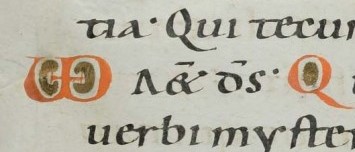 tia· Qui tecu
M A& ds̄· Q
uerbi myste